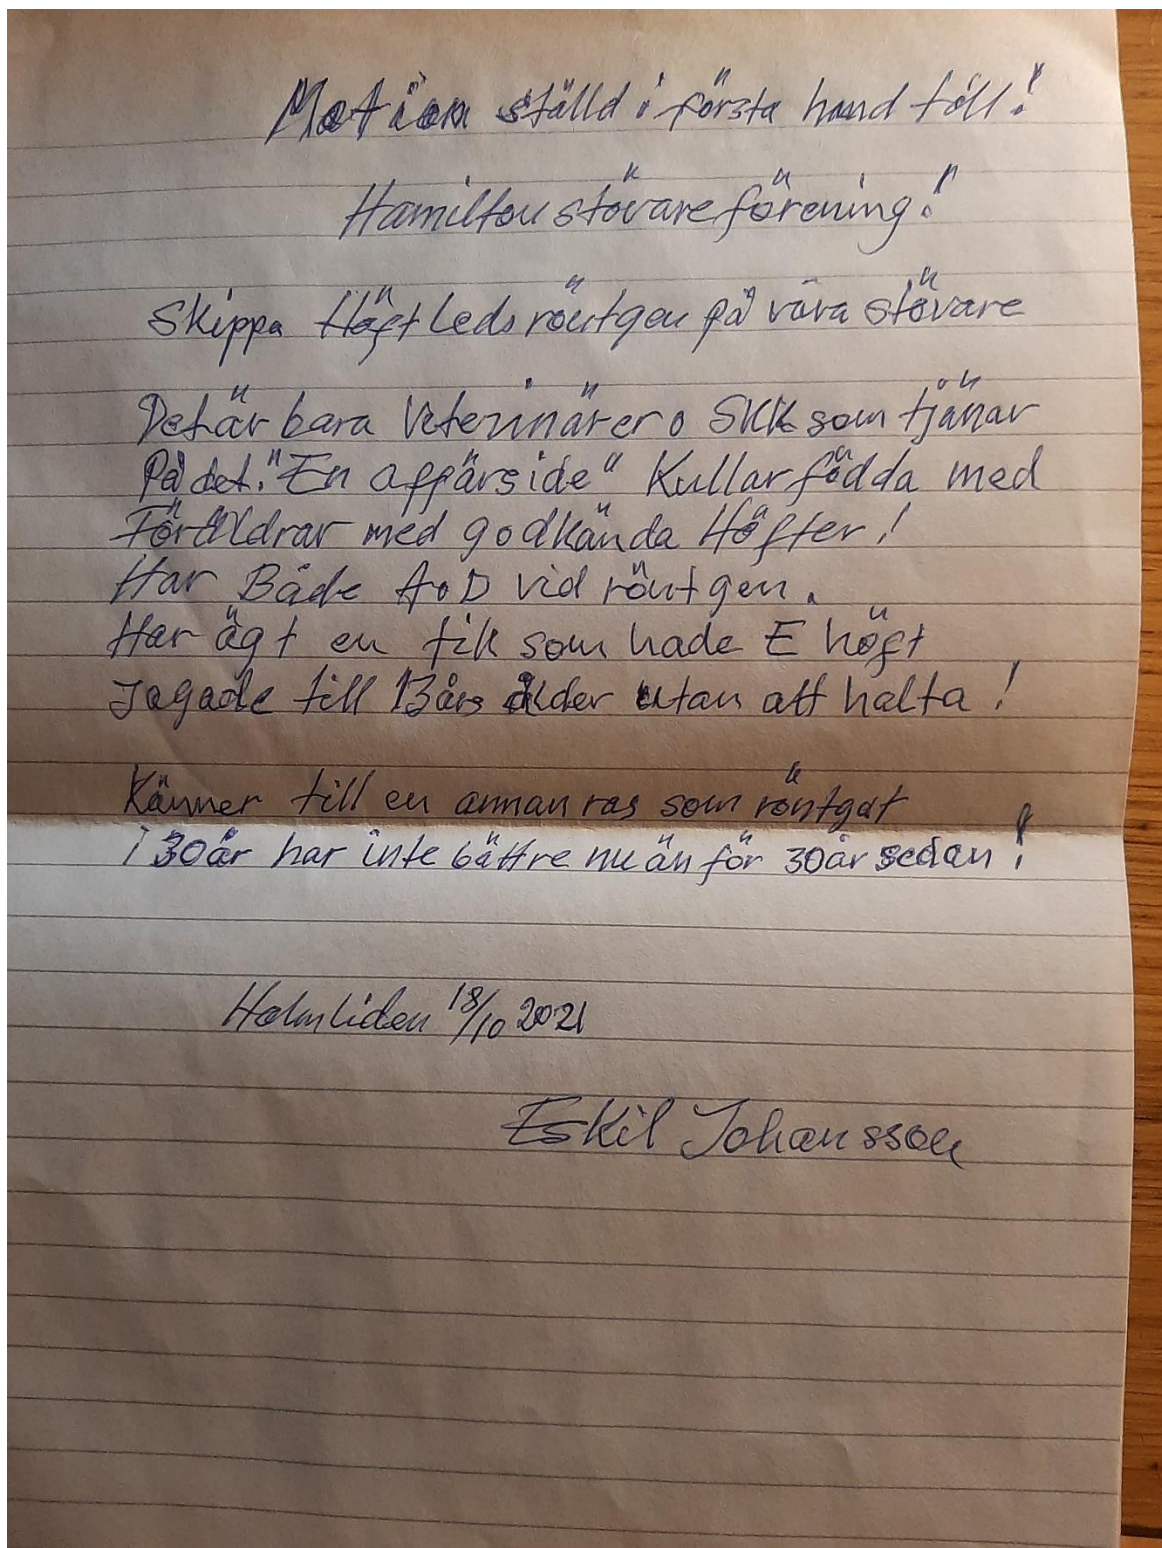 Motion ställd i första hand till!
Hamiltonstövareförening!
Skippa Höftledsröntgen på våra stövare
Det är bara Veterinärer o SKK som tjänar
På det. "En affärside" Kullar födda med
Föräldrar med godkända Höfter!
Har Både A o D vid röntgen.
Har ägt en tik som hade E höft
Jagade till 13 års ålder utan att halta!
Känner till en annan ras som röntgat
i 30 år har inte bättre nu än för 30 år sedan!
Holmliden 18/10 2021
Eskil Johansson